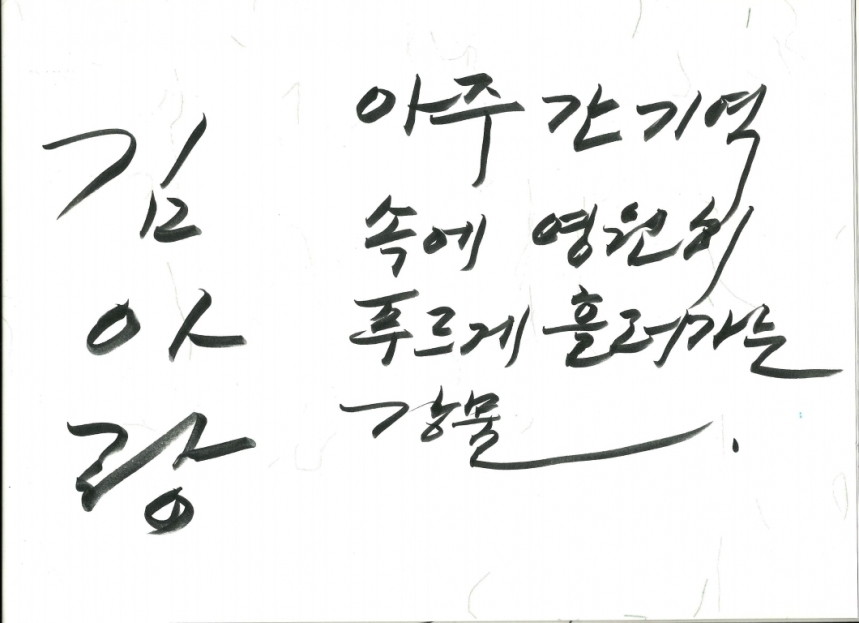 김아랑
아주 간 기억
속에 영원히
푸르게 흘러가는
강물.